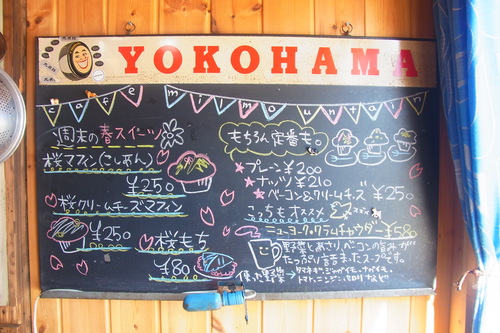 YOKOHAMA
cafe milmountain
週末の春スイーツ
桜マフィン(こしあん)
¥250
桜クリームチーズマフィン
¥250
桜もち
¥80
もちろん定番も。
★プレーン¥200
★ナッツ¥210
★ベーコン&クリームチーズ¥250
こちらもオススメ
ニューヨーククラムチャウダー¥580
野菜とあさり、ベーコンの旨みが
たっぷり詰まったスープです。
使った野菜→タマネギ、ジャガイモ、
トマト、ニンジン、セロリなど